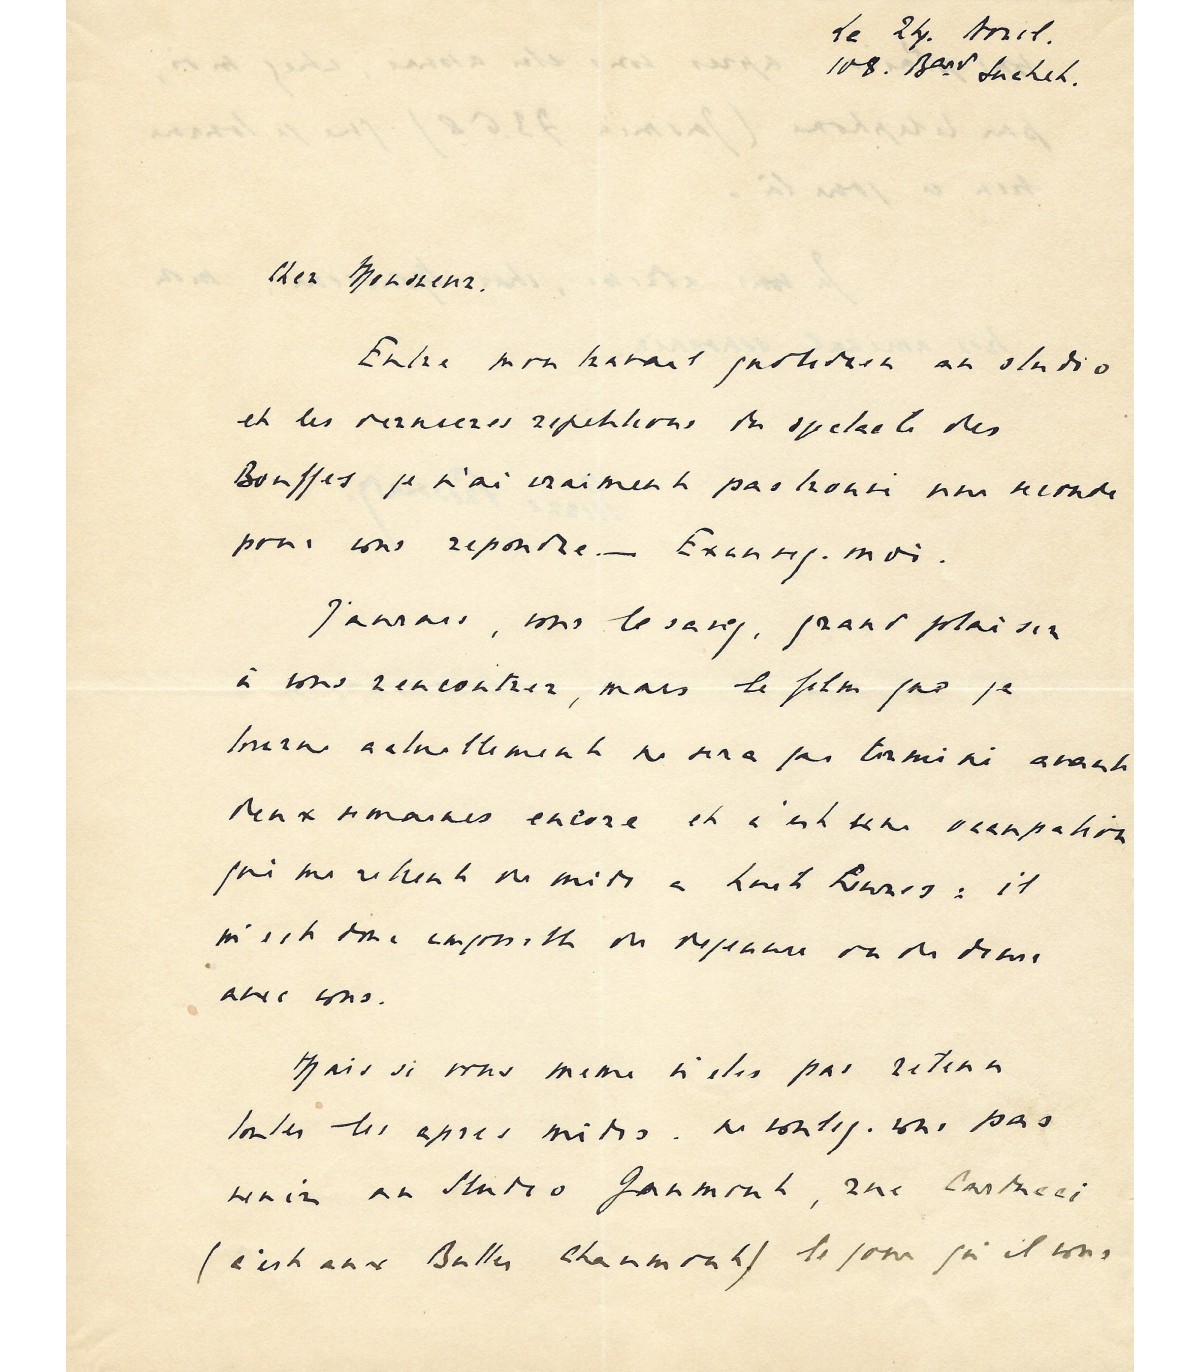 le 24. Avril.
108. Bard Suchet.
Cher Monsieur.
Entre mon travail quotidien au studio
et les dernieres repetitions du spectacle des
Bouffes je n'ai vraiment pas trouvé une seconde
pour vous repondre. — Excusez-moi.
J'aurais, vous le savez, grand plaisir
à vous rencontrer, mais le film que je
tourne actuellement ne sera pas terminé avant
deux semaines encore et c'est une occupation
qui me retient de midi a huit heures : il
m'est donc impossible de dejeuner ou de diner
avec vous.
Mais si vous meme n'etes pas retenu
toutes les apres midis. ne voulez-vous pas
venir au Studio Gaumont, rue Carducci
(c'est aux Buttes Chaumont) le jour qu'il vous